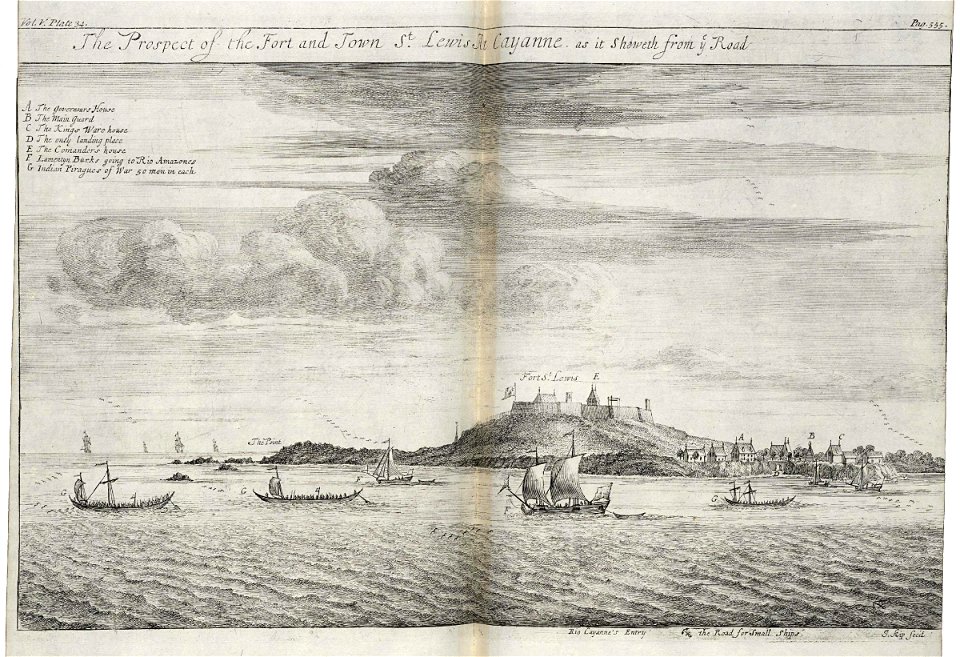 Vol. V. Plate 34.
Pag. 555.
The Prospect of the Fort and Town St. Lewis At Cayanne. as it Sheweth from ye Road
A The Governours House
B The Main Guard
C The Kings Ware house
D The only landing place
E The Comanders house
F Lamentyn Barks going to Rio Amazones
G Indian Piragues of War 50 men in each
Fort St. Lewis E
The Point
A B C
G G G
Rio Cayanne's Entry
the Road for Small Ships
J. Kip fecit